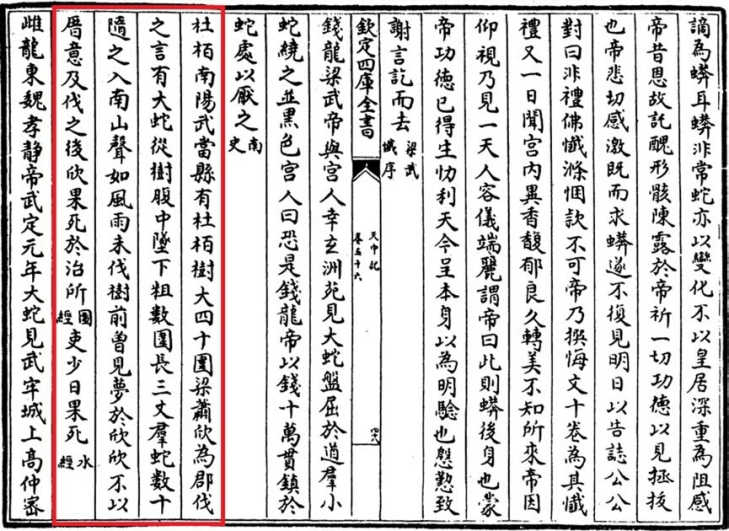 謫為蟒耳蟒非常蛇亦以變化不以皇居深重為阻感
帝昔恩故託醜形骸陳露於帝祈一切功德以見拯拔
也帝悲切感激既而求蟒遂不復見明日以告誌公公
對曰非禮佛懺滌悃款不可帝乃撰悔文十卷為其懺
禮又一日聞宮内異香馥郁良久轉美不知所來帝因
仰視乃見一天人容儀端麗謂帝曰此則蟒後身也蒙
帝功德已得生忉利天今呈本身以為明驗也慇懃致
謝言訖而去
梁武
懺序
欽定四庫全書
天中記
卷五十六
錢龍梁武帝與宮人幸玄洲苑見大蛇盤屈於道羣小
蛇繞之並黒色宮人曰恐是錢龍帝以錢十萬貫鎮於
蛇處以厭之
南
史
杜栢南陽武當縣有杜栢樹大四十圍梁蕭欣為郡伐
之言有大蛇從樹腹中墜下粗數圍長三丈羣蛇數十
隨之入南山聲如風雨未伐樹前曽見夢於欣欣不以
厝意及伐之後欣果死於治所
圖
經
吏少日果死
水
經
雌龍東魏孝静帝武定元年大蛇見武牢城上髙仲宻